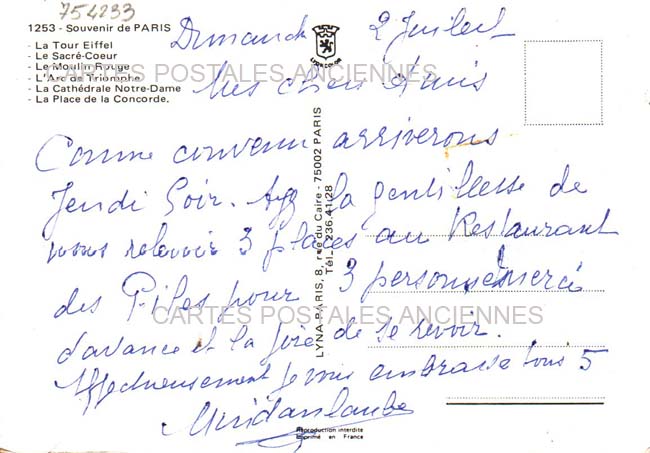 754233
1253 - Souvenir de PARIS
- La Tour Eiffel
- Le Sacré-Coeur
- Le Moulin Rouge
- L'Arc de Triomphe
- La Cathédrale Notre-Dame
- La Place de la Concorde.
LYNA-PARIS, 8, rue du Caire - 75002 PARIS
Tél. 236.41.28
Dimanche 2 Juillet
Mes chers Amis
Comme convenu arriverons
Jeudi Soir. Ayez la gentillesse de
nous retenir 3 places au Restaurant
des Pins pour 3 personnes merci
d'avance et la joie de se revoir.
Affectueusement je vous embrasse tous 5
CARTES POSTALES ANCIENNES
CARTES POSTALES ANCIENNES
Reproduction interdite
Imprimé en France